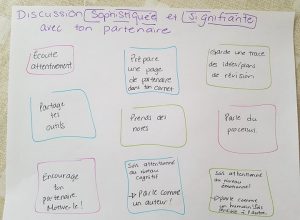 Discussion Sophistiquée et Signifiante
avec ton partenaire
Écoute
attentivement
Prépare
une page
de partenaire
dans ton carnet
Garde une trace
des idées/plans
de révision
Partage
tes
outils
Prends des
notes
Parle du
processus
Encourage
ton
partenaire.
Motive-le!
Sois attentionné
au niveau
cognitif
→ Parle comme
un auteur!
Sois attentionné
au niveau
émotionnel!
→ parle comme
un humain/sois
sensible à l'autre.